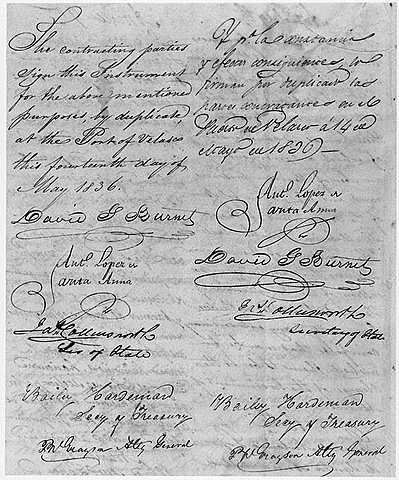 The contracting parties
sign this Instrument
for the above mentioned
purposes, by duplicate
at the Port of Velasco
this fourteenth day of
May 1836.
David G Burnet
Anto. Lopez de
Santa Anna
Jas Collinsworth
Sec of State
Baily Hardeman
Secy of Treasury
P W Grayson Atty General
Y pa. la constancia
y efectos consiguientes, lo
firman por duplicado las
partes contratantes en el
de Velasco á 14 de
Mayo de 1836
Anto. Lopez de
Santa Anna
David G Burnet
Jas Collinsworth
Secretary of State
Baily Hardeman
Secy of Treasury
P W Grayson Atty General